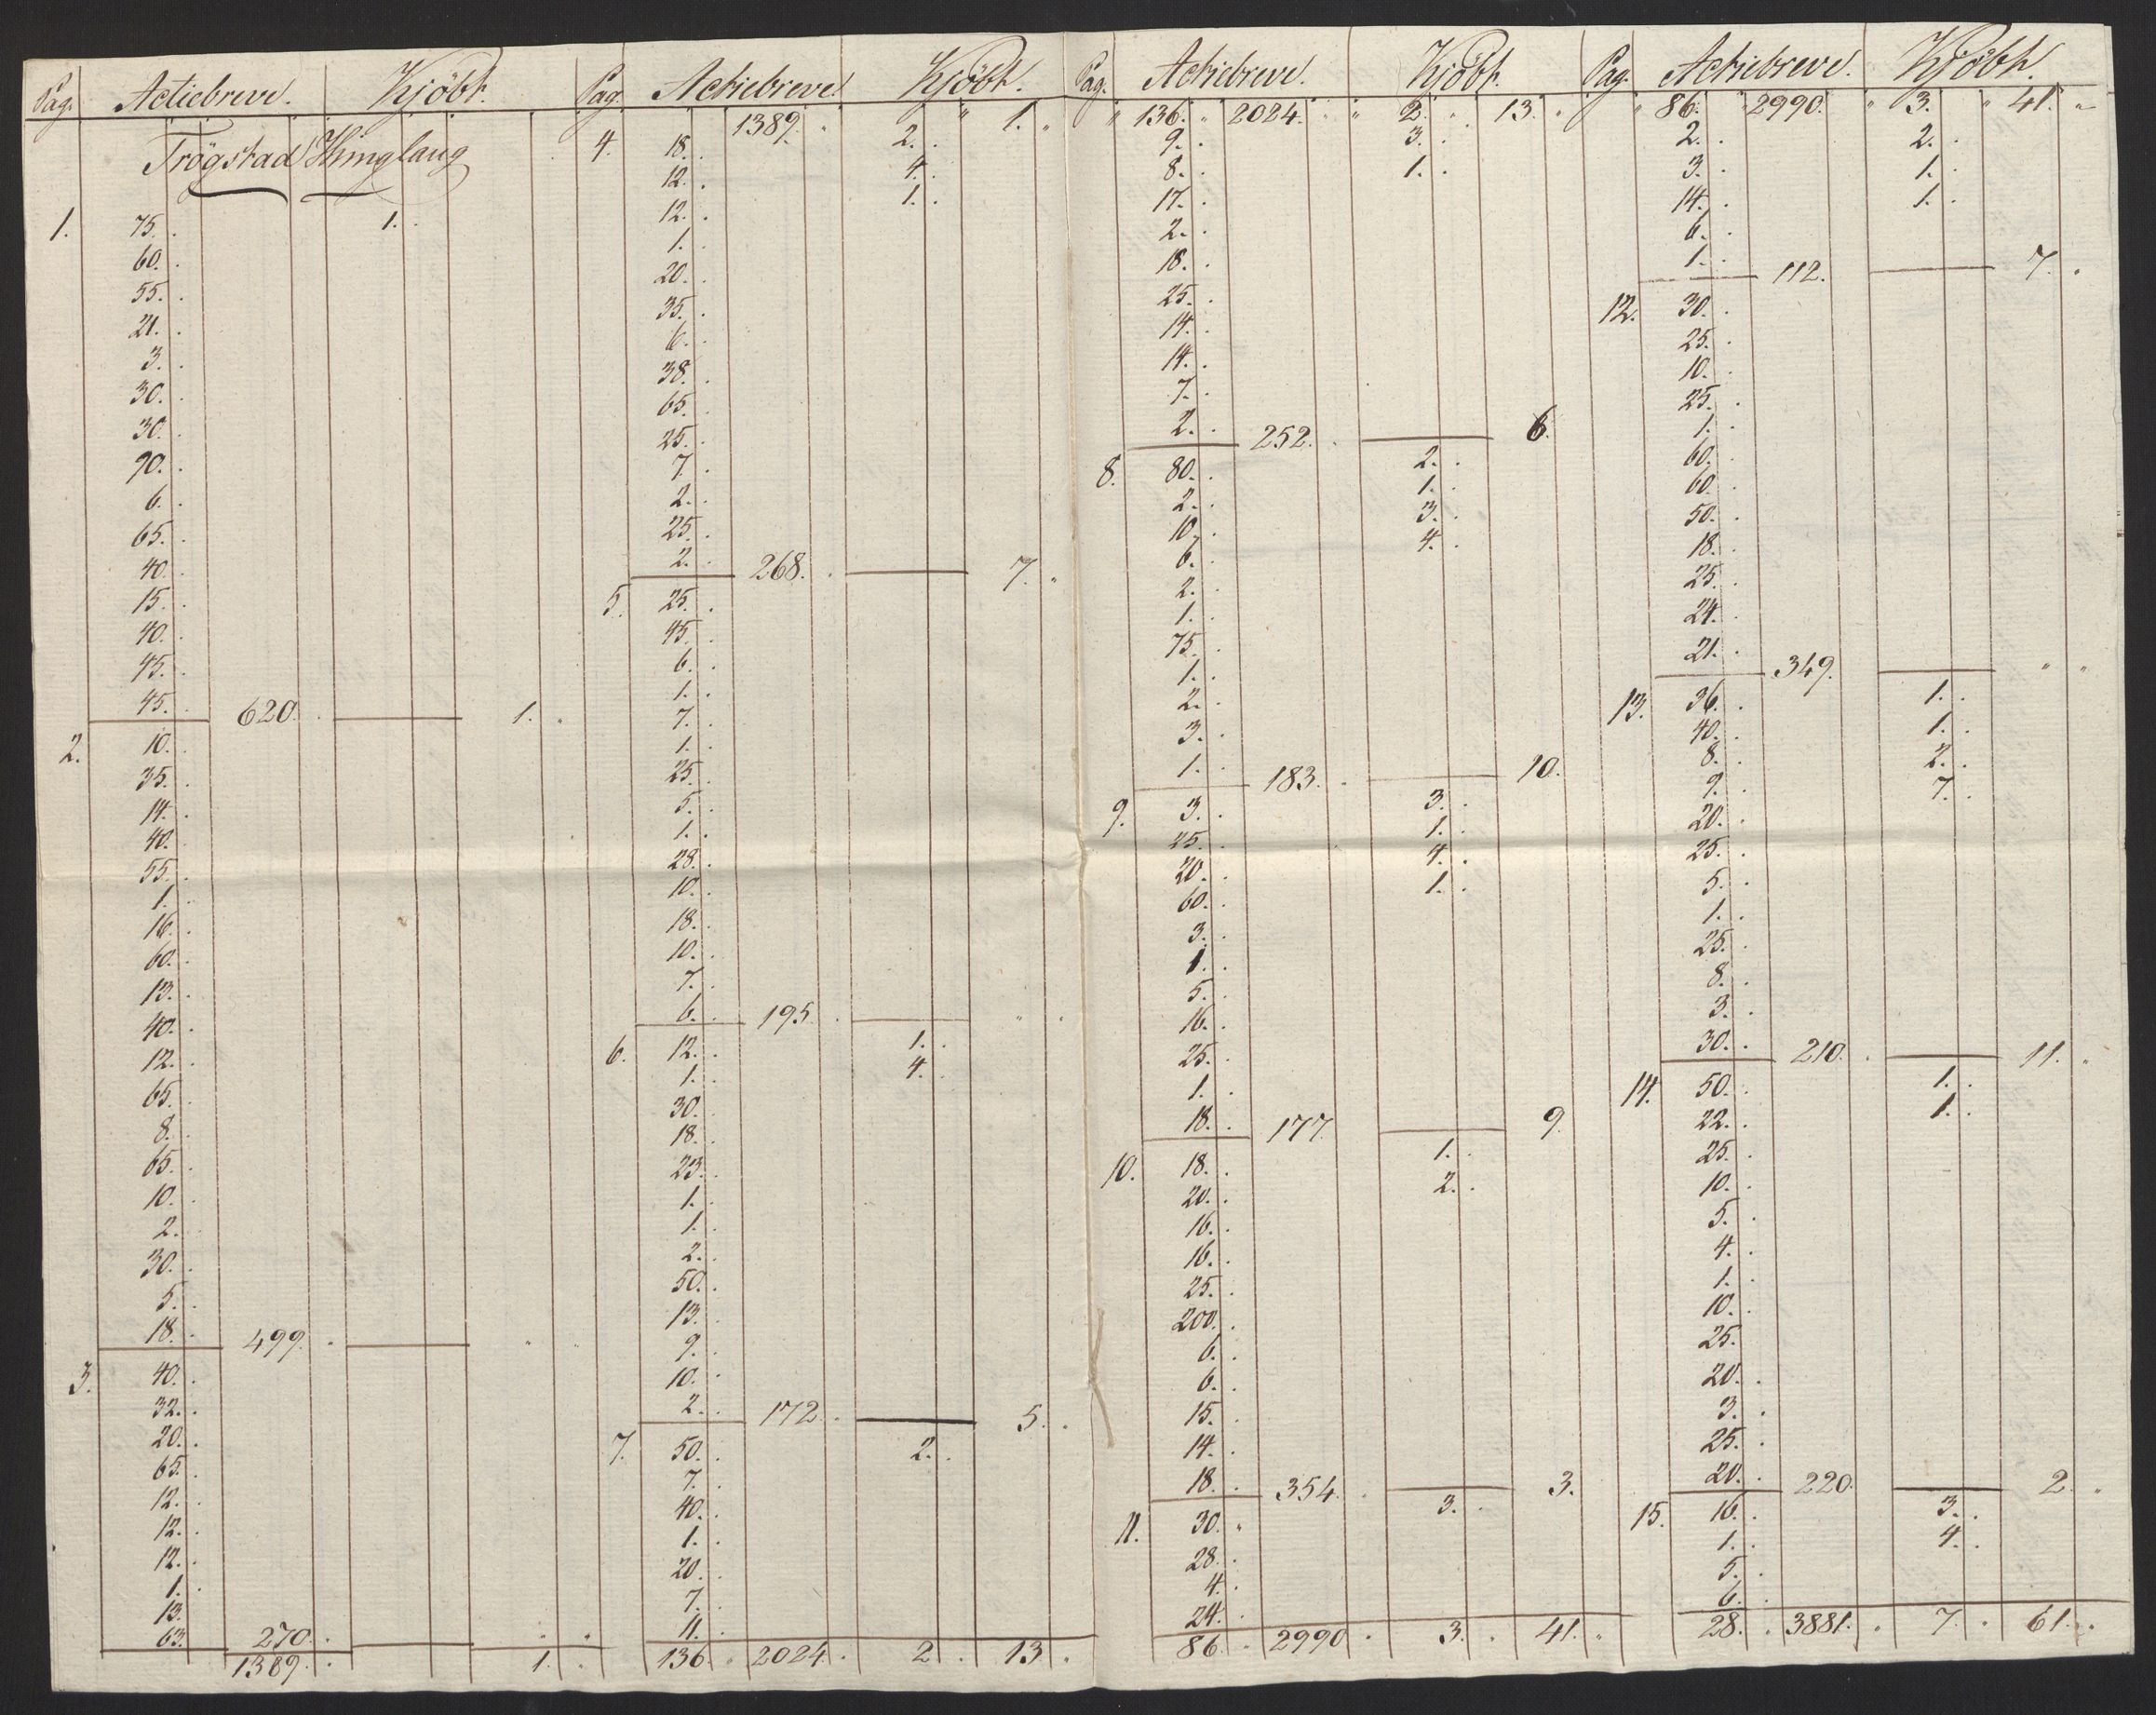 Pag. Actiebreve. Kjöbt.
Trögstad Thinglaug
1. 75. 1.
60.
55.
21.
3.
30.
30.
90.
6.
65.
40.
15.
40.
45.
45. 620. 1.
2. 10.
35.
14.
40.
55.
1.
16.
60.
13.
40.
12.
65.
8.
65.
10.
2.
30.
5.
18. 499. " "
3. 40.
32.
20.
65.
12.
12.
12.
1.
13.
63. 270. " "
1389. 1.
Pag. Actiebreve Kjöbt.
1389. " 1. "
4. 18. 2.
12. 4.
12. 1.
1.
20.
35.
6.
38.
65.
25.
7.
2.
25.
2. 268. 7. "
5. 25.
45.
6.
1.
7.
1.
25.
5.
1.
28.
10.
18.
10.
7.
6. 195. " "
6. 12. 1.
1. 4.
30.
18.
23.
1.
1.
2.
50.
13.
9.
10.
2. 172. 5.
7. 50. 2.
7.
40.
1.
20.
7.
11.
136. " 2024. 2. 13.
Pag. Actiebreve. Kjöbt.
" 136. " 2024. " " 2. " 13. "
9. 3.
8. 1.
17.
2.
18.
25.
14.
14.
7.
2. 252. 6.
8. 80. 2.
2. 1.
10. 3.
6. 4.
2.
1.
75.
1.
2.
3.
1. 183. 10.
9. 3. 3.
25. 1.
20. 4.
60. 1.
3.
1.
5.
16.
25.
1.
18. 177. 9.
10. 18. 1.
20. 2.
16.
16.
25.
200.
6.
6.
15.
14.
18. 354. 3.
11. 30. 3.
28.
4.
24.
86. 2990 3. 41. "
Pag. Actiebreve. Kjöbt.
" 86. " 2990. " 3. " 41. "
2. 2.
3. 1.
14. 1.
6.
1. 112. 7.
12. 30.
25.
10.
25.
1.
60.
60.
50.
18.
25.
24.
21. 349. " "
13. 36. 1.
40. 1.
8. 2.
9. 7.
20.
25.
5.
1.
25.
8.
3.
30. 210. 11. "
14. 50. 1.
22. 1.
25.
10.
5.
4.
1.
10.
25.
20.
3.
25.
20. 220. 2. "
15. 16. 3.
1. 4.
5.
6.
28. 3881. " 7. 61.